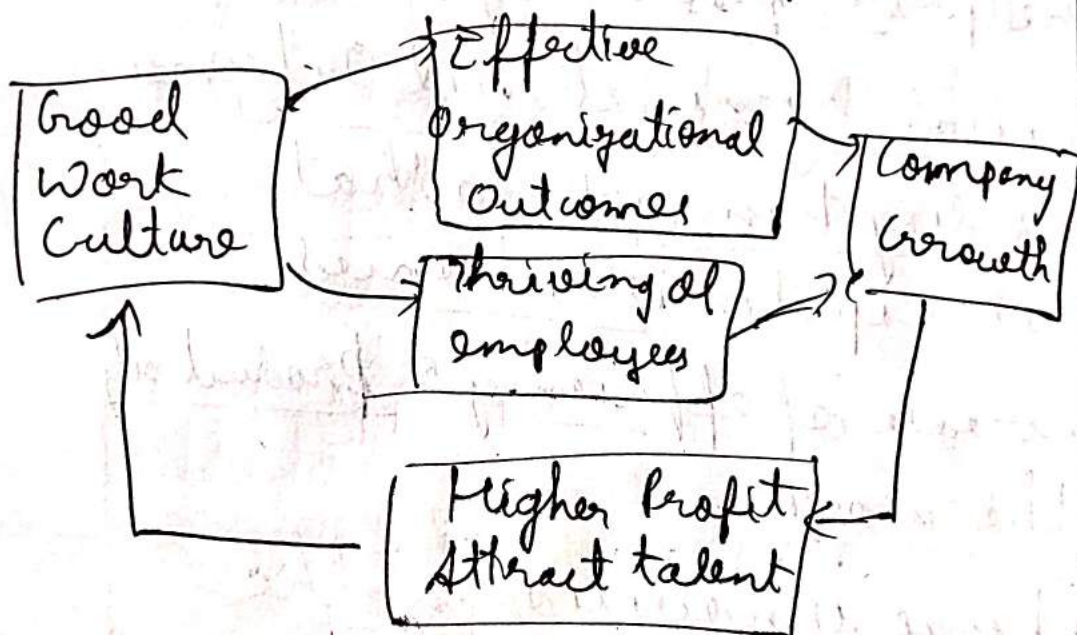 Good
Work
Culture
Effective
Organizational
Outcomes
Thriving of
employees
Company
Growth
Higher Profit
Attract talent